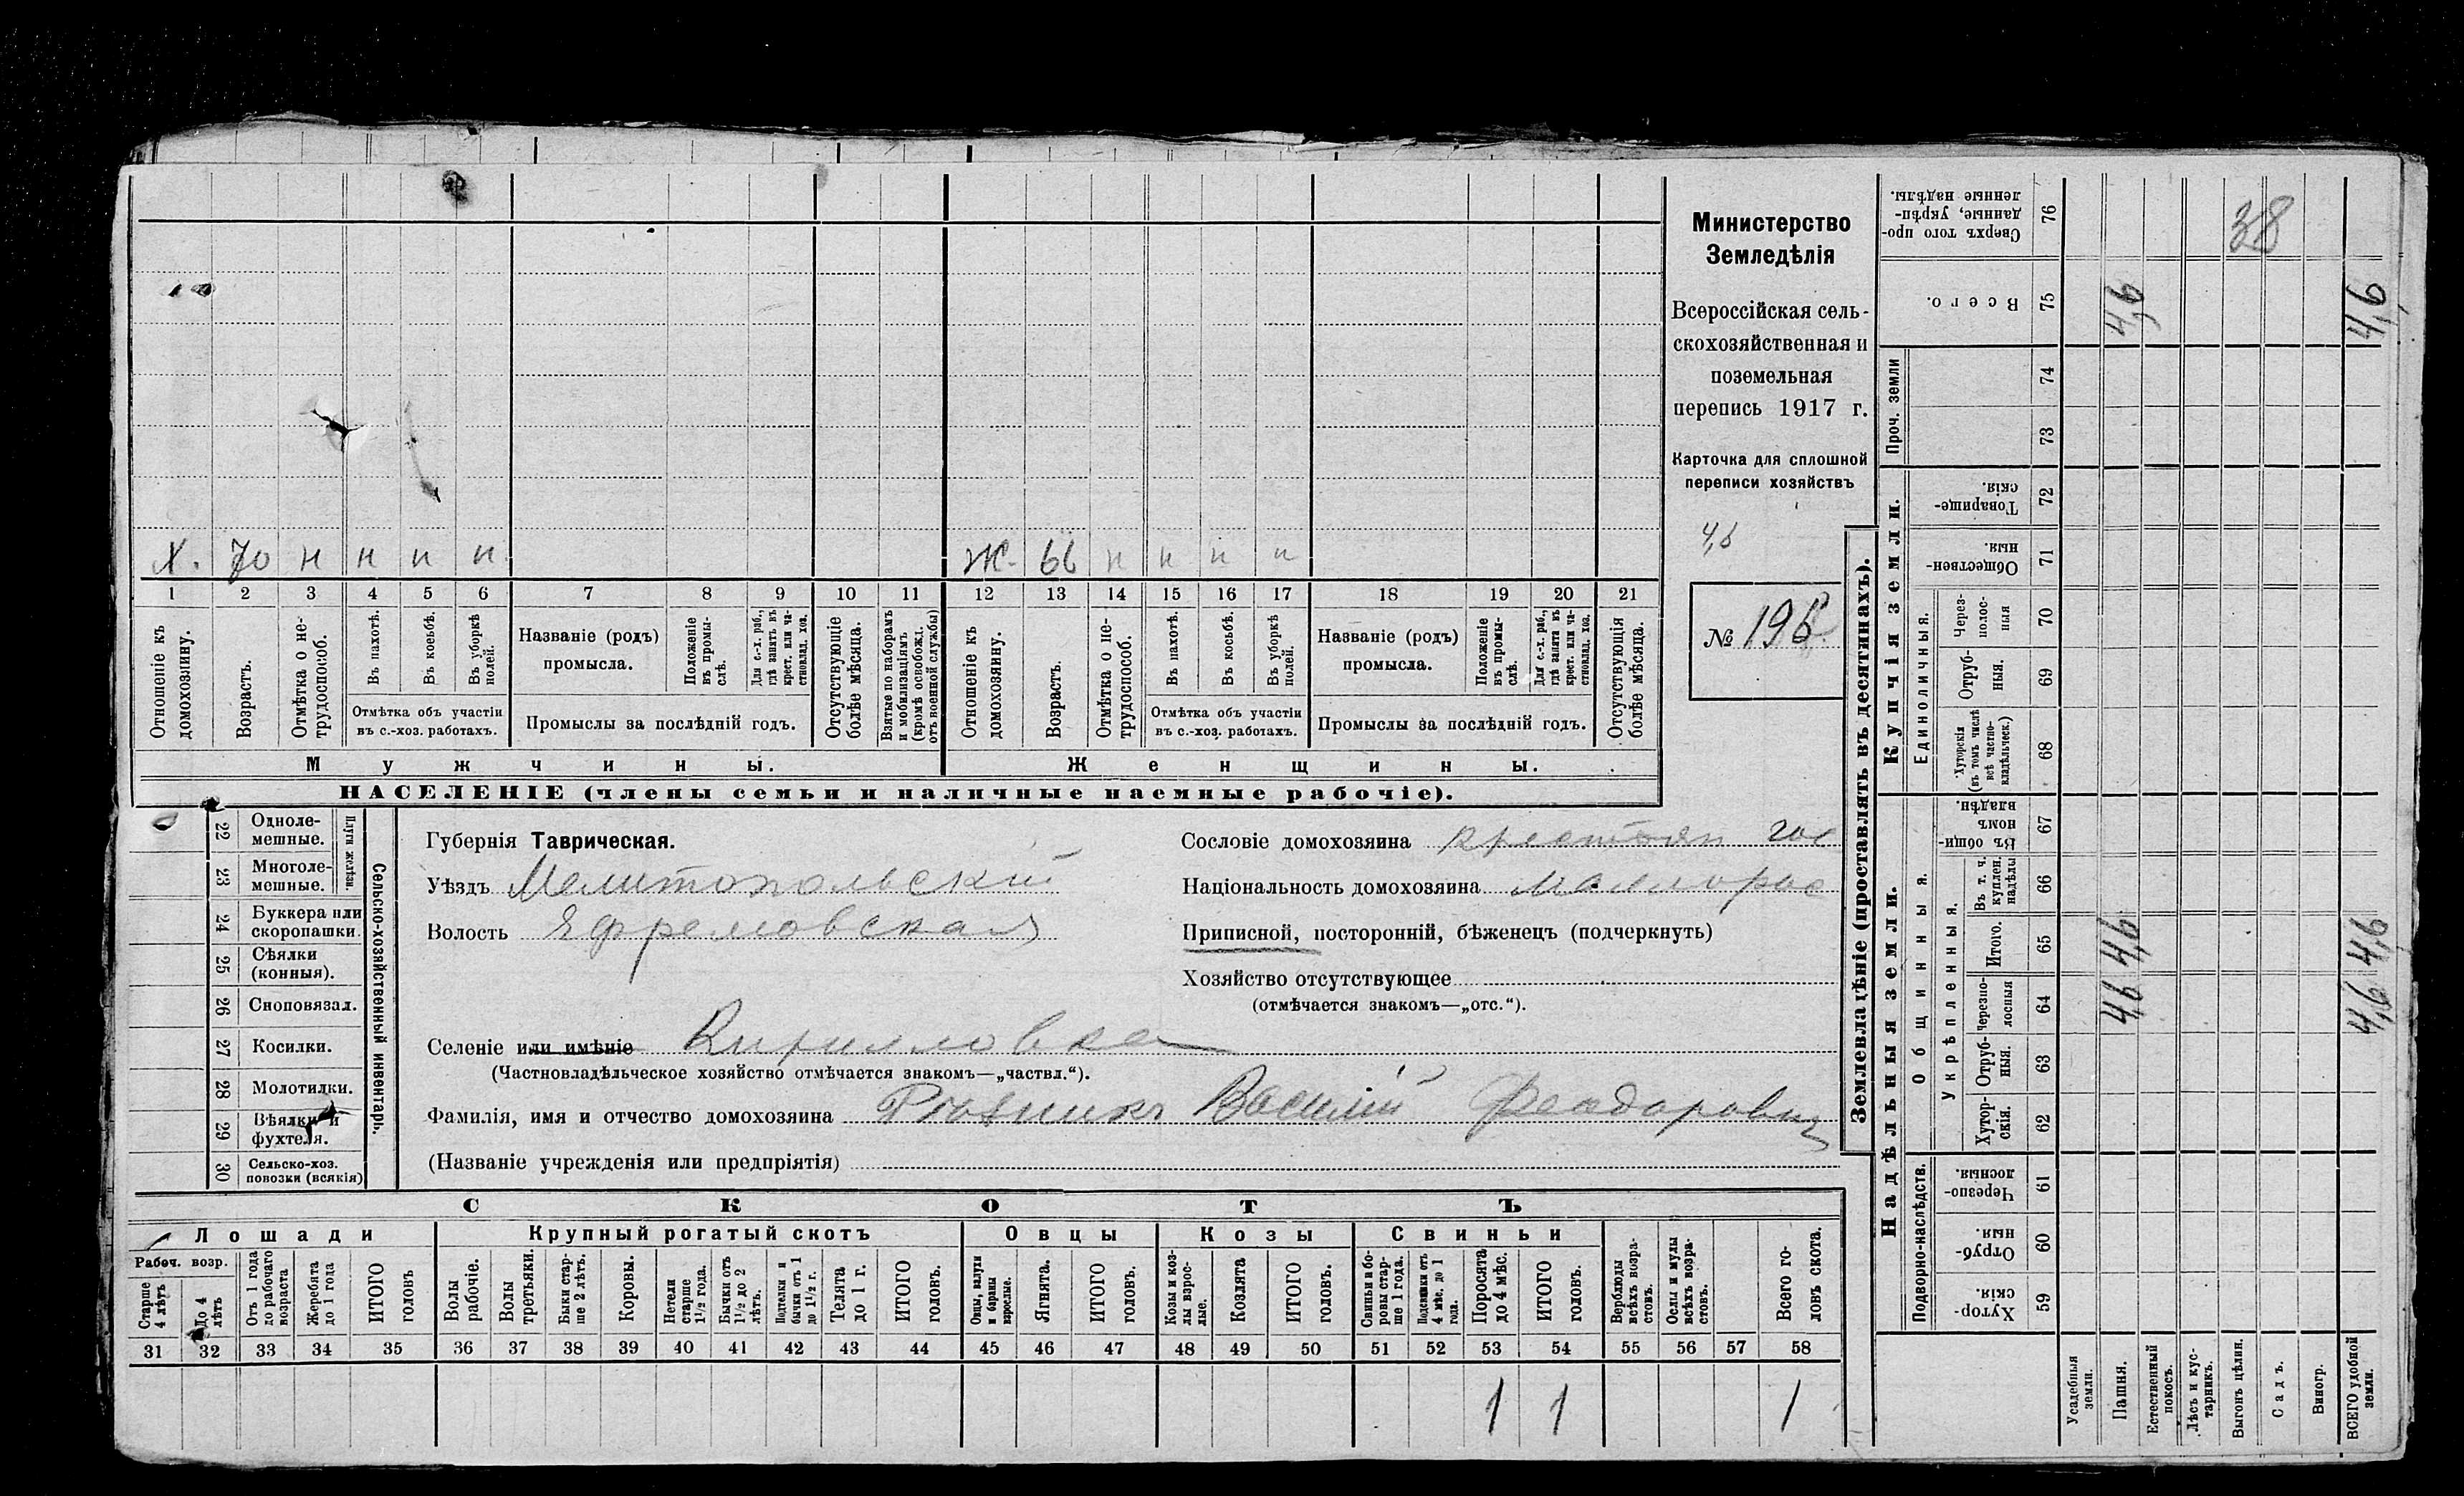 Х. 70 н н н н Ж. 66 н н н н
1 2 3 4 5 6 7 8 9 10 11 12 13 14 15 16 17 18 19 20 21
Отношеніе къ домохозяину.
Возрастъ.
Отмѣтка о нетрудоспособ.
Въ пахотѣ.
Въ косьбѣ.
Въ уборкѣ полей.
Отмѣтка объ участіи
въ с.-хоз. работахъ.
Названіе (родъ)
промысла.
Положеніе въ промыслѣ.
Для с.-х. раб., гдѣ занятъ въ крест. или частновлад. хоз.
Промыслы за послѣдній годъ.
Отсутствующіе болѣе мѣсяца.
Взятые по наборамъ и мобилизаціямъ (кромѣ освобожд. отъ военной службы)
Отношеніе къ домохозяину.
Возрастъ.
Отмѣтка о нетрудоспособ.
Въ пахотѣ.
Въ косьбѣ.
Въ уборкѣ полей.
Отмѣтка объ участіи
въ с.-хоз. работахъ.
Названіе (родъ)
промысла.
Положеніе въ промыслѣ.
Для с.-х. раб., гдѣ занята въ крест. или частновлад. хоз.
Промыслы за послѣдній годъ.
Отсутствующія болѣе мѣсяца.
Мужчины. Женщины.
НАСЕЛЕНІЕ (члены семьи и наличные наемные рабочіе).
Министерство
Земледѣлія
Всероссійская сель-
скохозяйственная и
поземельная
перепись 1917 г.
Карточка для сплошной
переписи хозяйствъ
4,6
№ 196
22 Однолемешные.
23 Многолемешные.
Плуги желѣзн.
24 Буккера или скоропашки.
25 Сѣялки (конныя).
26 Сноповязал.
27 Косилки.
28 Молотилки.
29 Вѣялки и фухтеля.
30 Сельско-хоз. повозки (всякія)
Сельско-хозяйственный инвентарь.
Губернія Таврическая.
Уѣздъ Мелитопольскій
Волость Ефремовская
Селеніе или имѣніе Кирилловка
(Частновладѣльческое хозяйство отмѣчается знакомъ—„частвл.“).
Фамилія, имя и отчество домохозяина Василій Феодорович
(Названіе учрежденія или предпріятія)
Сословіе домохозяина крестьян
Національность домохозяина малорос
Приписной, посторонній, бѣженецъ (подчеркнуть)
Хозяйство отсутствующее
(отмѣчается знакомъ—„отс.“).
СКОТЪ
Лошади Крупный рогатый скотъ Овцы Козы Свиньи
Рабоч. возр.
Старше 4 лѣтъ
До 4 лѣтъ
Отъ 1 года до рабочаго возраста
Жеребята до 1 года
ИТОГО головъ
Волы рабочіе.
Волы третьяки.
Быки старше 2 лѣтъ.
Коровы.
Нетели старше 1½ года.
Бычки отъ 1½ до 2 лѣтъ.
Подтелки и бычки отъ 1 до 1½ г.
Телята до 1 г.
ИТОГО головъ.
Овцы, валухи и бараны взрослые.
Ягнята.
ИТОГО головъ.
Козы и козлы взрослые.
Козлята
ИТОГО головъ.
Свиньи и боровы старше 1 года.
Подсвинки отъ 4 мѣс. до 1 года.
Поросята до 4 мѣс.
ИТОГО головъ.
Верблюды всѣхъ возрастовъ.
Ослы и мулы всѣхъ возрастовъ.
Всего головъ скота.
31 32 33 34 35 36 37 38 39 40 41 42 43 44 45 46 47 48 49 50 51 52 53 54 55 56 57 58
1 1 1
Землевладѣніе (проставлять въ десятинахъ).
Надѣльныя земли. Купчія земли. Проч. земли
Подворно-наслѣдств.
Общинныя.
Укрѣпленныя.
Единоличныя.
Хуторскія. 59
Отрубныя. 60
Черезполосныя. 61
Хуторскія. 62
Отрубныя. 63
Черезполосныя 64 4,6 4,6
Итого. 65 4,6 4,6
Въ т. ч. куплен. надѣлы 66
Въ общиномъ владѣн. 67
Хуторскія (въ томъ числѣ всѣ частновладѣльческ.) 68
Отрубныя. 69
Черезполосныя 70
Общественныя. 71
Товарищескія. 72
73
74
Всего. 75 4,6 4,6
Сверхъ того проданные, укрѣпленные надѣлы. 76
38
Усадебныя земли.
Пашня.
Естественный покосъ.
Лѣсъ и кустарникъ.
Выгонъ цѣлин.
Садъ.
Виногр.
ВСЕГО удобной земли.